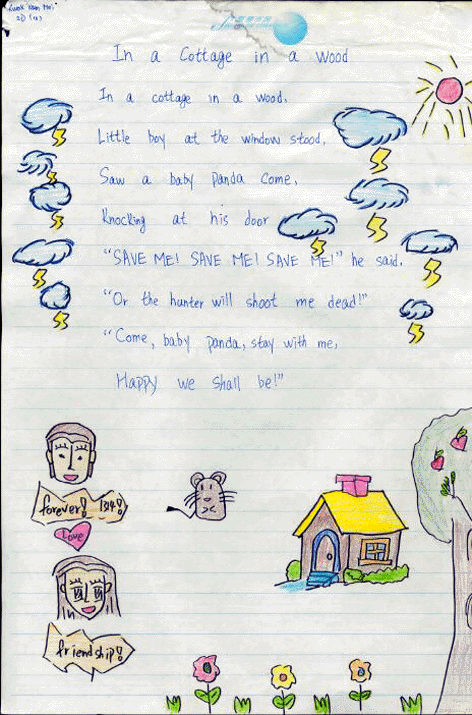 2D (14)
In a Cottage in a Wood
In a cottage in a wood.
Little boy at the window stood,
Saw a baby panda come,
Knocking at his door
"SAVE ME! SAVE ME! SAVE ME!" he said.
"Or the hunter will shoot me dead!"
"Come, baby panda, stay with me,
Happy we shall be!"
forever! 1314!
Love
friendship!